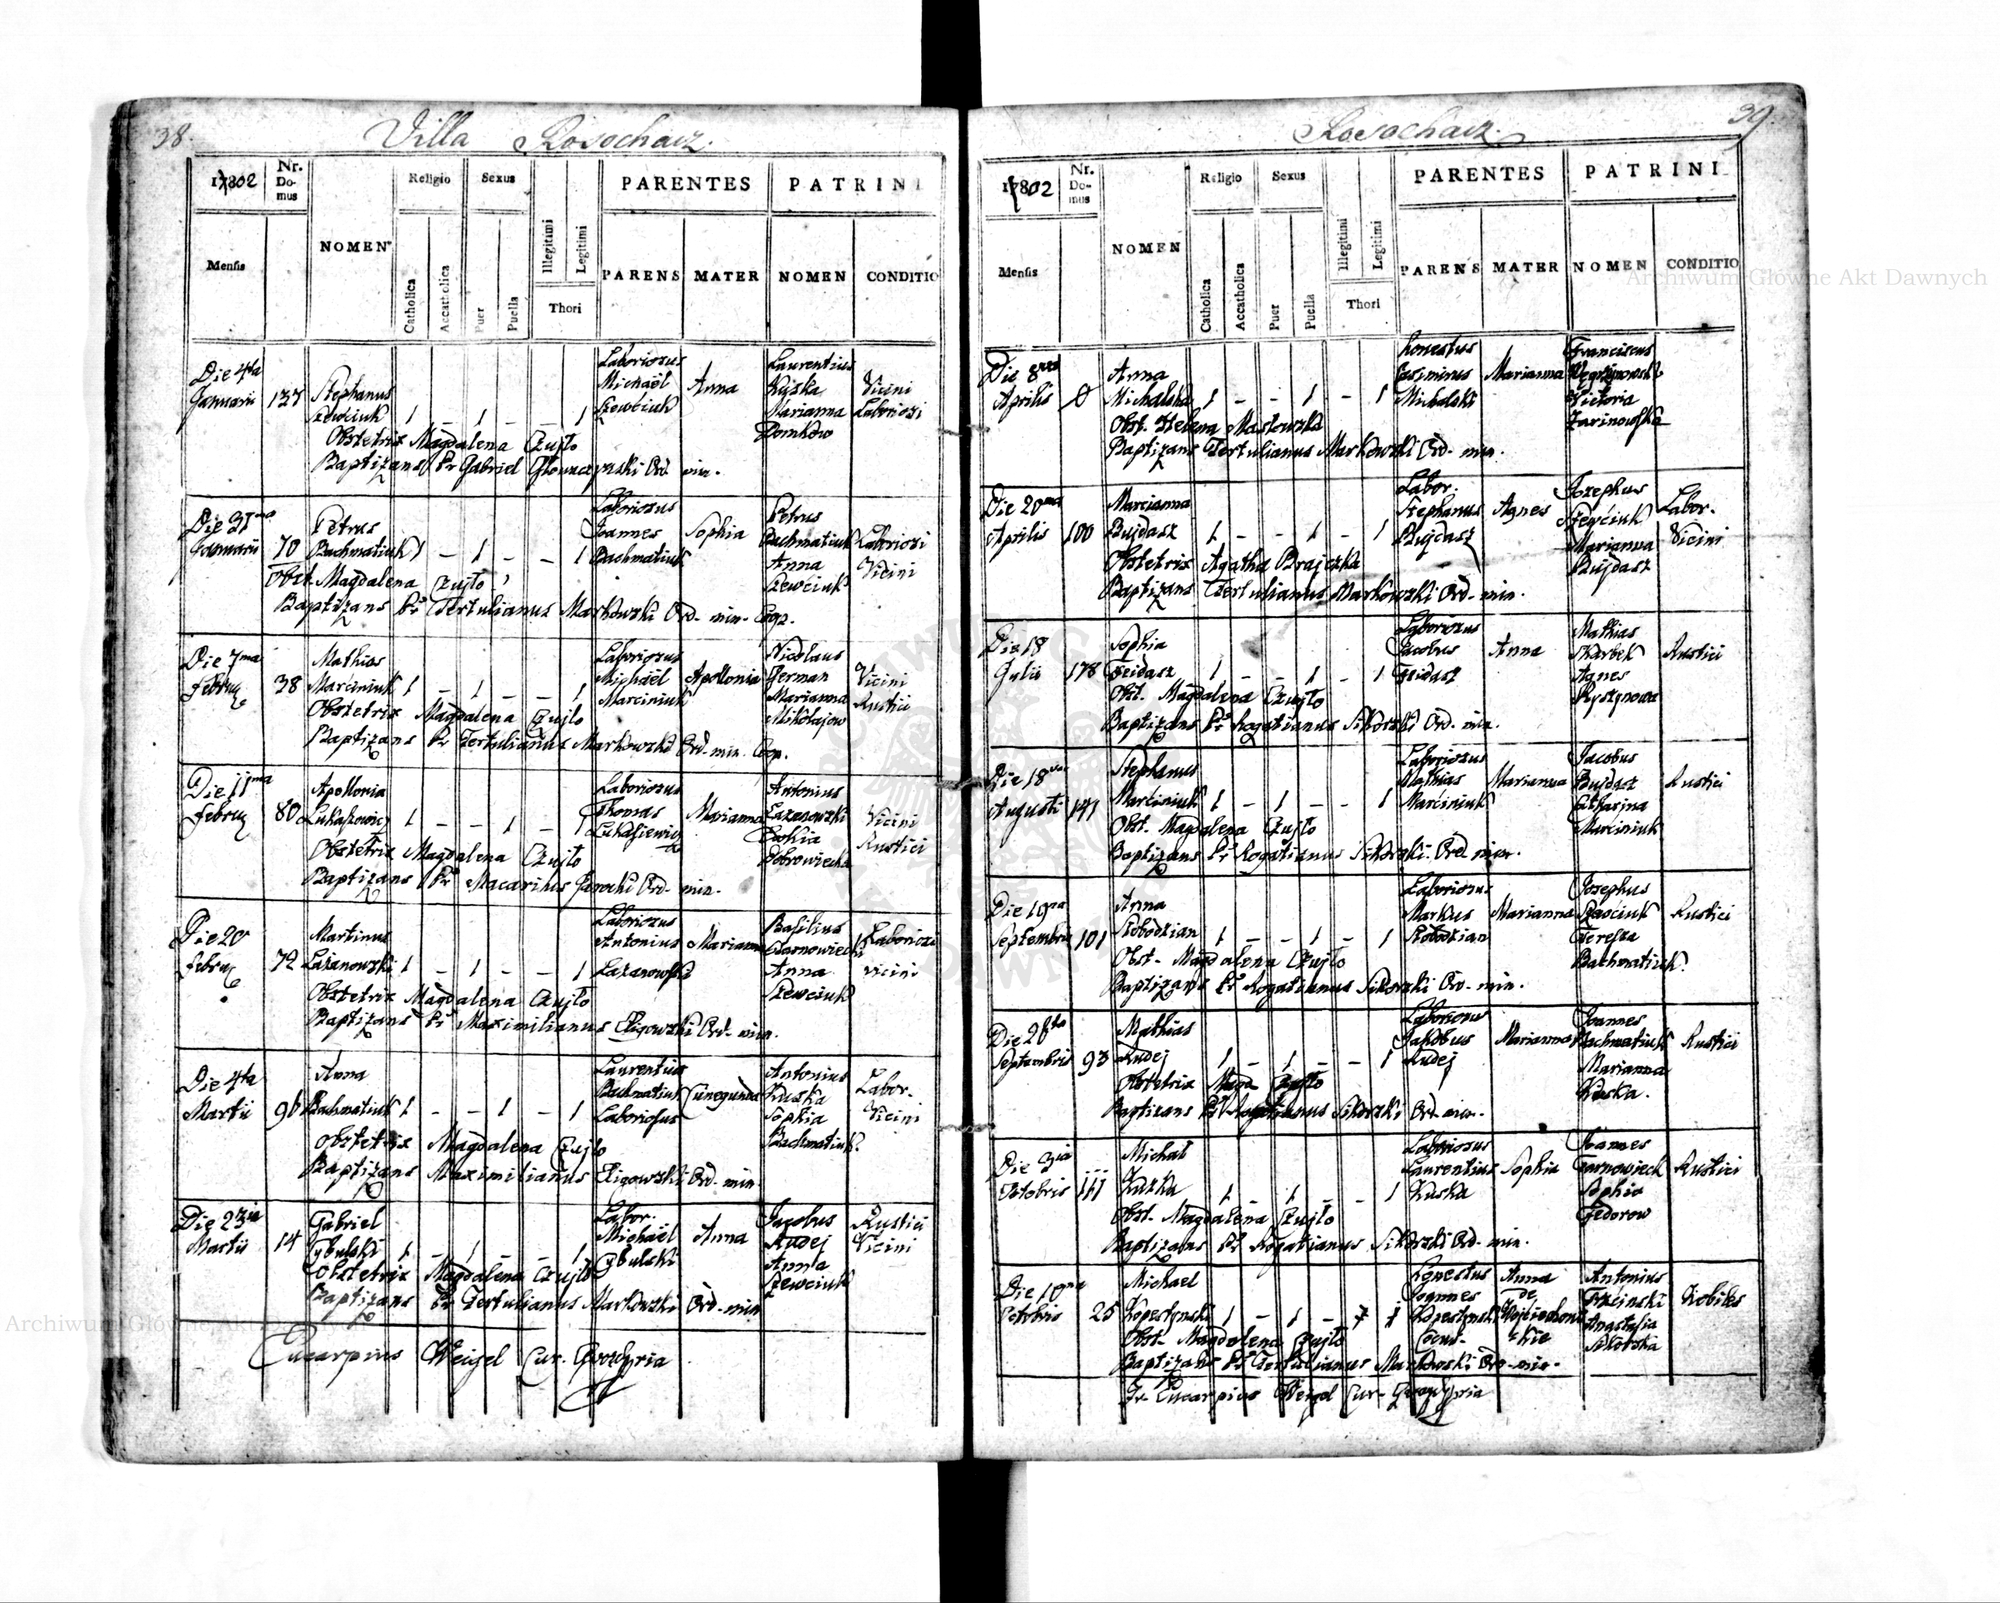 38.
Villa Rosochacz.
17802
Nr. Domus
NOMEN
Religio
Sexus
PARENTES
PATRINI
Mensis
Catholica
Accatholica
Puer
Puella
Illegitimi
Legitimi
Thori
PARENS
MATER
NOMEN
CONDITIO
Die 4ta Januarii 137 Stephanus Szewciuk 1 - 1 - - 1 Laboriosus Michaël Szewciuk Anna Laurentius Marianna Domkow Vicini Laboriosi
Obstetrix Magdalena Czujło
Baptizans Pr Gabriel Ord. min.
Die 31ma Januarii 70 Petrus Bachmatiuk 1 - 1 - - 1 Laboriosus Joannes Bachmatiuk Sophia Petrus Bachmatiuk Anna Szewciuk Laboriosi Vicini
Obst. Magdalena Czujło
Baptizans Pr Tertulianus Markowski Ord. min. Coop.
Die 7ma Febru 38 Mathias Marciniuk 1 - 1 - - 1 Laboriosus Michaël Marciniuk Apollonia Nicolaus German Marianna Mikołajow Vicini Rustici
Obstetrix Magdalena Czujło
Baptizans Pr Tertulianus Markowski Ord. min. Coop.
Die 11ma Febru 80 Apollonia 1 - - 1 - 1 Laboriosus Thomas Marianna Antonius Łazanowski Sophia Vicini Rustici
Obstetrix Magdalena Czujło
Baptizans Pr Macarius Ord. min.
Die 20 Febru 72 Martinus Łazanowski 1 - 1 - - 1 Laboriosus Antonius Łazanowski Marianna Basilius Anna Szewciuk Laboriosi vicini
Obstetrix Magdalena Czujło
Baptizans Pr Maximilianus Ord. min.
Die 4ta Martii 96 Anna Bachmatiuk 1 - - 1 - 1 Laurentius Bachmatiuk Laboriosus Cunegunda Antonius Kuska Sophia Bachmatiuk Labor. Vicini
Obstetrix Magdalena Czujło
Baptizans Maximilianus Ord. min.
Die 23ia Martii 14 Gabriel Cybulski 1 - 1 - - 1 Labor. Michaël Cybulski Anna Jacobus Rudej Anna Szewciuk Rustici Vicini
Obstetrix Magdalena Czujło
Baptizans Pr Tertulianus Markowski Ord. min.
Eucarpius Weigel Cur. Gwozdyria
39.
Rosochacz.
17802
Nr. Domus
NOMEN
Religio
Sexus
PARENTES
PATRINI
Mensis
Catholica
Accatholica
Puer
Puella
Illegitimi
Legitimi
Thori
PARENS
MATER
NOMEN
CONDITIO
Die 8va Aprilis 0 Anna Michalska 1 - - 1 - 1 honestus Casimirus Michalski Marianna Franciscus Victoria
Obst. Helena Masłowska
Baptizans Tertulianus Markowski Ord. min.
Die 20ma Aprilis 100 Marianna Bujdasz 1 - - 1 - 1 Labor. Stephanus Bujdasz Agnes Josephus Szewciuk Marianna Bujdasz Labor. Vicini
Obstetrix Agatha
Baptizans Tertulianus Markowski Ord. min.
Die 18 Julii 178 Sophia Feidasz 1 - - 1 - 1 Laboriosus Jacobus Feidasz Anna Mathias Skarbek Agnes Rustici
Obst. Magdalena Czujło
Baptizans Pr Rogatianus Sikorski Ord. min.
Die 18va Augusti 141 Stephanus Marciniuk 1 - 1 - - 1 Laboriosus Mathias Marciniuk Marianna Jacobus Bujdasz Catharina Marciniuk Rustici
Obst. Magdalena Czujło
Baptizans Pr Rogatianus Sikorski Ord. min.
Die 19na Septembris 101 Anna Słobodzian 1 - - 1 - 1 Laboriosus Markus Słobodzian Marianna Josephus Teressa Bachmatiuk Rustici
Obst. Magdalena Czujło
Baptizans Pr Rogatianus Sikorski Ord. min.
Die 26ta Septembris 93 Mathias Rudej 1 - 1 - - 1 Laboriosus Jakobus Rudej Marianna Joannes Bachmatiuk Marianna Kuska. Rustici
Obstetrix Magda Czujło
Baptizans Pr Rogatianus Sikorski Ord. min.
Die 3ia Octobris 111 Michał Kuska 1 - 1 - - 1 Laboriosus Laurentius Kuska Sophia Joannes Sophia Fedorow Rustici
Obst. Magdalena Czujło
Baptizans Pr Rogatianus Sikorski Ord. min.
Die 19na Octobris 25 Michael Kopestynski 1 - 1 - 1 Honestus Joannes Kopestynski Anna de Antonius Anastasia Sikorska Nobiles
Obst. Magdalena Czujło
Baptizans Pr Tertulianus Markowski Ord. min.
Fr. Eucarpius Weigel Cur. Gwozdyria
Archiwum Główne Akt Dawnych
Archiwum Główne Akt Dawnych